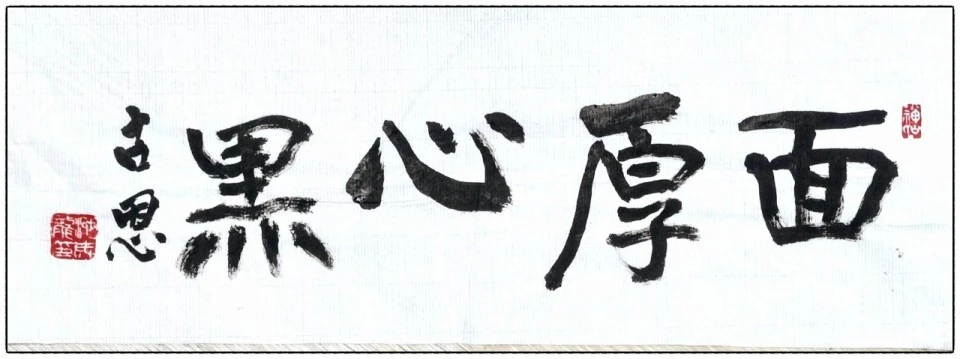 面厚心黑
古恩